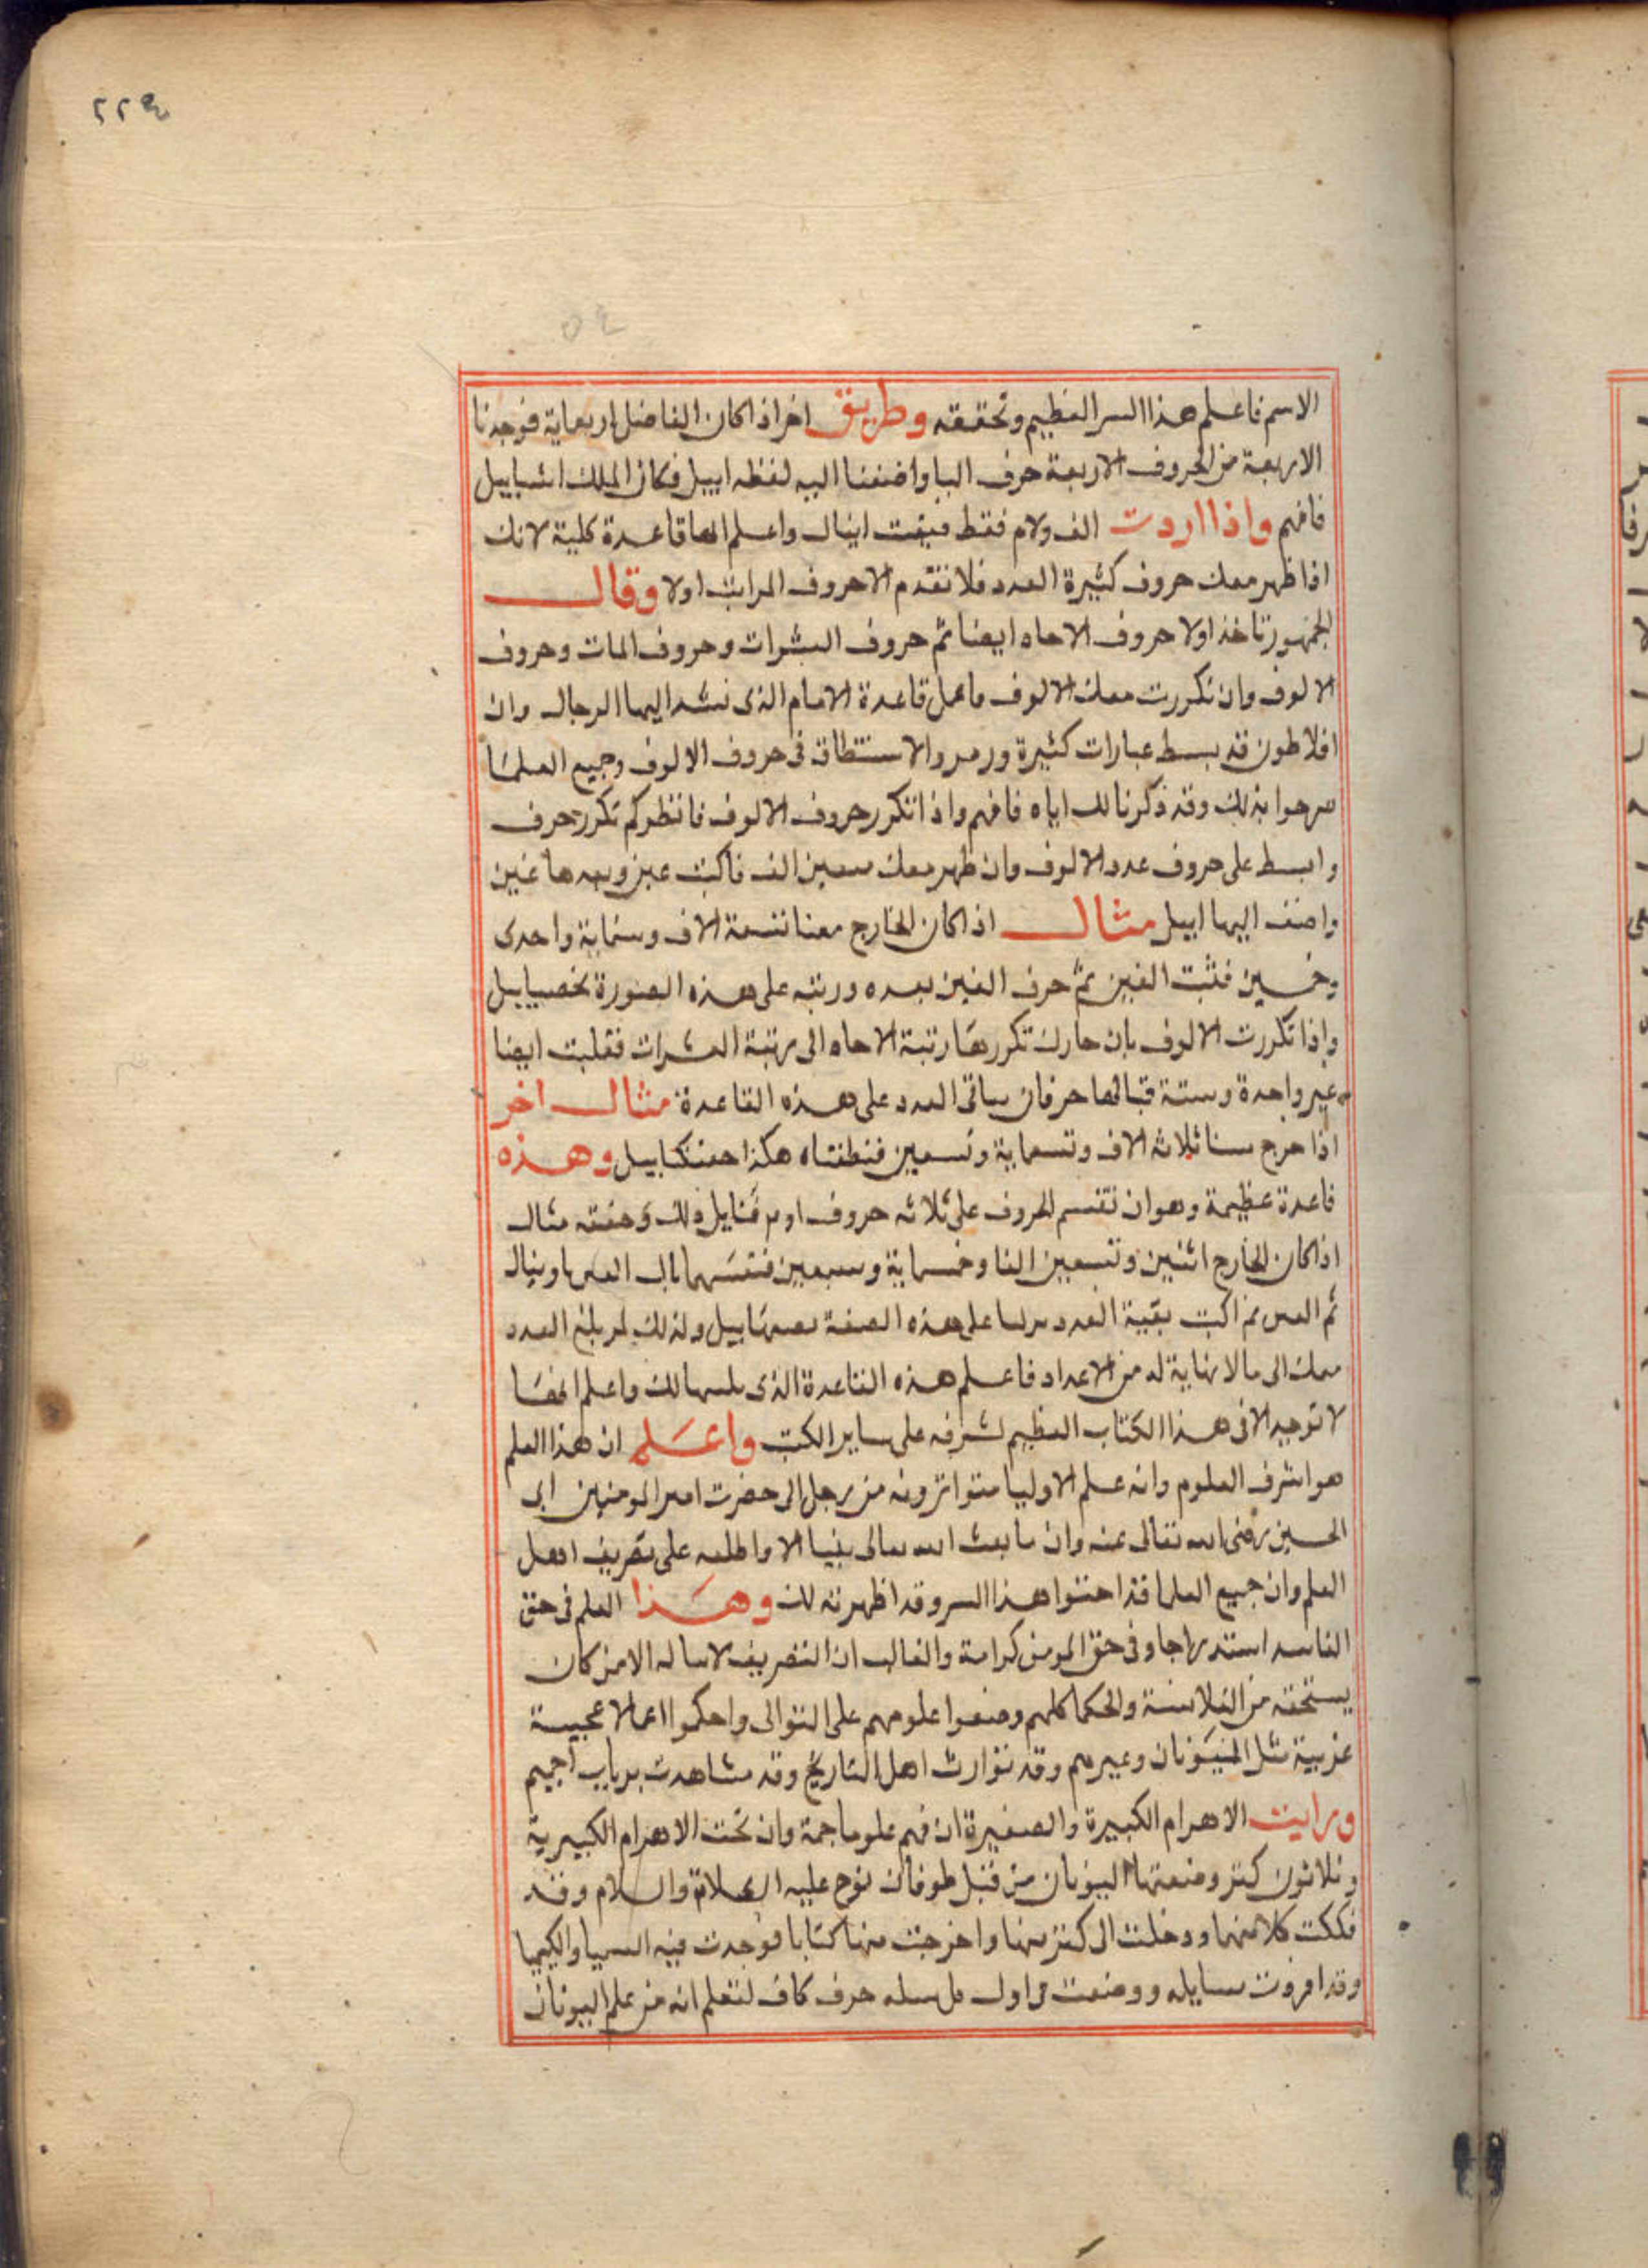 ٢٢٤
الاسم فاعلم هذا السر العظيم وتحققه وطريق اخر اذا كان الفاضل اربعماية فوجدنا
الاربعة من الحروف الاربعة حرف البا واضفنا اليه لفظه اييل فكان الملك
فافهم واذا اردت الف ولام فقط فيبقت اينال واعلم انها قاعدة كلية لانك
اذا ظهر معك حروف كثيرة العدد فلا تقدم الا حروف المراتب اولا وقال
الجمهور تاخذ اولا حروف الاحاد ايضا ثم حروف العشرات وحروف المات وحروف
الالوف وان تكررت معك الالوف فاعمل قاعدة الامام الذى تشد اليها الرجال وان
افلاطون قد بسط عبارات كثيرة ورمز والاستنطاق فى حروف الالوف وجميع العلما
صرحوا بذلك وقد ذكرنا لك اياه فافهم واذا تكرر حروف الالوف فانظر كم تكرر حرف
وابسط على حروف عدد الالوف وان ظهر معك سبعين الف فاكتب عين وبعدها غين
واضف اليها اييل مثال اذا كان الخارج معنا تسعة الاف وستماية واحدى
وخمسين فثبت الغين ثم حرف الغين بعده ورتبه على هذه الصورة
واذا تكررت الالوف بان جازت تكررها رتبة الاحاد الى رتبة العشرات فقلبت ايضا
غير واحدة وستة حرفان باقى العدد على هذه القاعدة مثال اخر
اذا خرج معنا ثلاثة الاف وتسعماية وتسعين فنطقناه هكذا وهذه
قاعدة عظيمة وهو ان تقسم الحروف على ثلاثه حروف ذلك مثال
اذا كان الخارج اثنين وتسعين الفا وخمسماية وسبعين
ثم اكتب بقية العدد على هذه الصفة ولذلك لم يبلغ العدد
معك الى مالا نهاية له من الاعداد فاعلم هذه القاعدة الذى لك واعلم انها
لا توجد الا فى هذا الكتاب العظيم لشرفه على ساير الكتب واعلم ان هذا العلم
هو اشرف العلوم وانه علم الاوليا متواترونه من رجل الى حضرت امير المومنين ابى
الحسين رضى الله تعالى عنه وان ما بعث الله تعالى نبيا الا واطلعه على تصريف اهل
العلم وان جميع العلما قد اخفوا هذا السر وقد اظهرته لك وهذا العلم فى حق
الفاسد استدراجا وفى حق المومن كرامة والغالب ان التصريف لا يناله الا من كان
يستحقه من الفلاسفة والحكما كلهم وضعوا علومهم على التوالى واحكموا اعمالا عجيبة
غريبة مثل وغيرهم وقد توارث اهل التاريخ وقد شاهدت برباب اخميم
ورايت الاهرام الكبيرة والصغيرة ان فيهم علوما جمة وان تحت الاهرام الكبير
وثلاثون كنز وضعتها اليونان من قبل طوفان نوح عليه الصلاة والسلام وقد
فككت كلا منها ودخلت الى كنز منها واخرجت منها كتابا فوجدت فيه السيميا والكيميا
وقد افردت مسايله ووضعت فى اول كل مسله حرف كاف لتعلم انه من علم اليونان